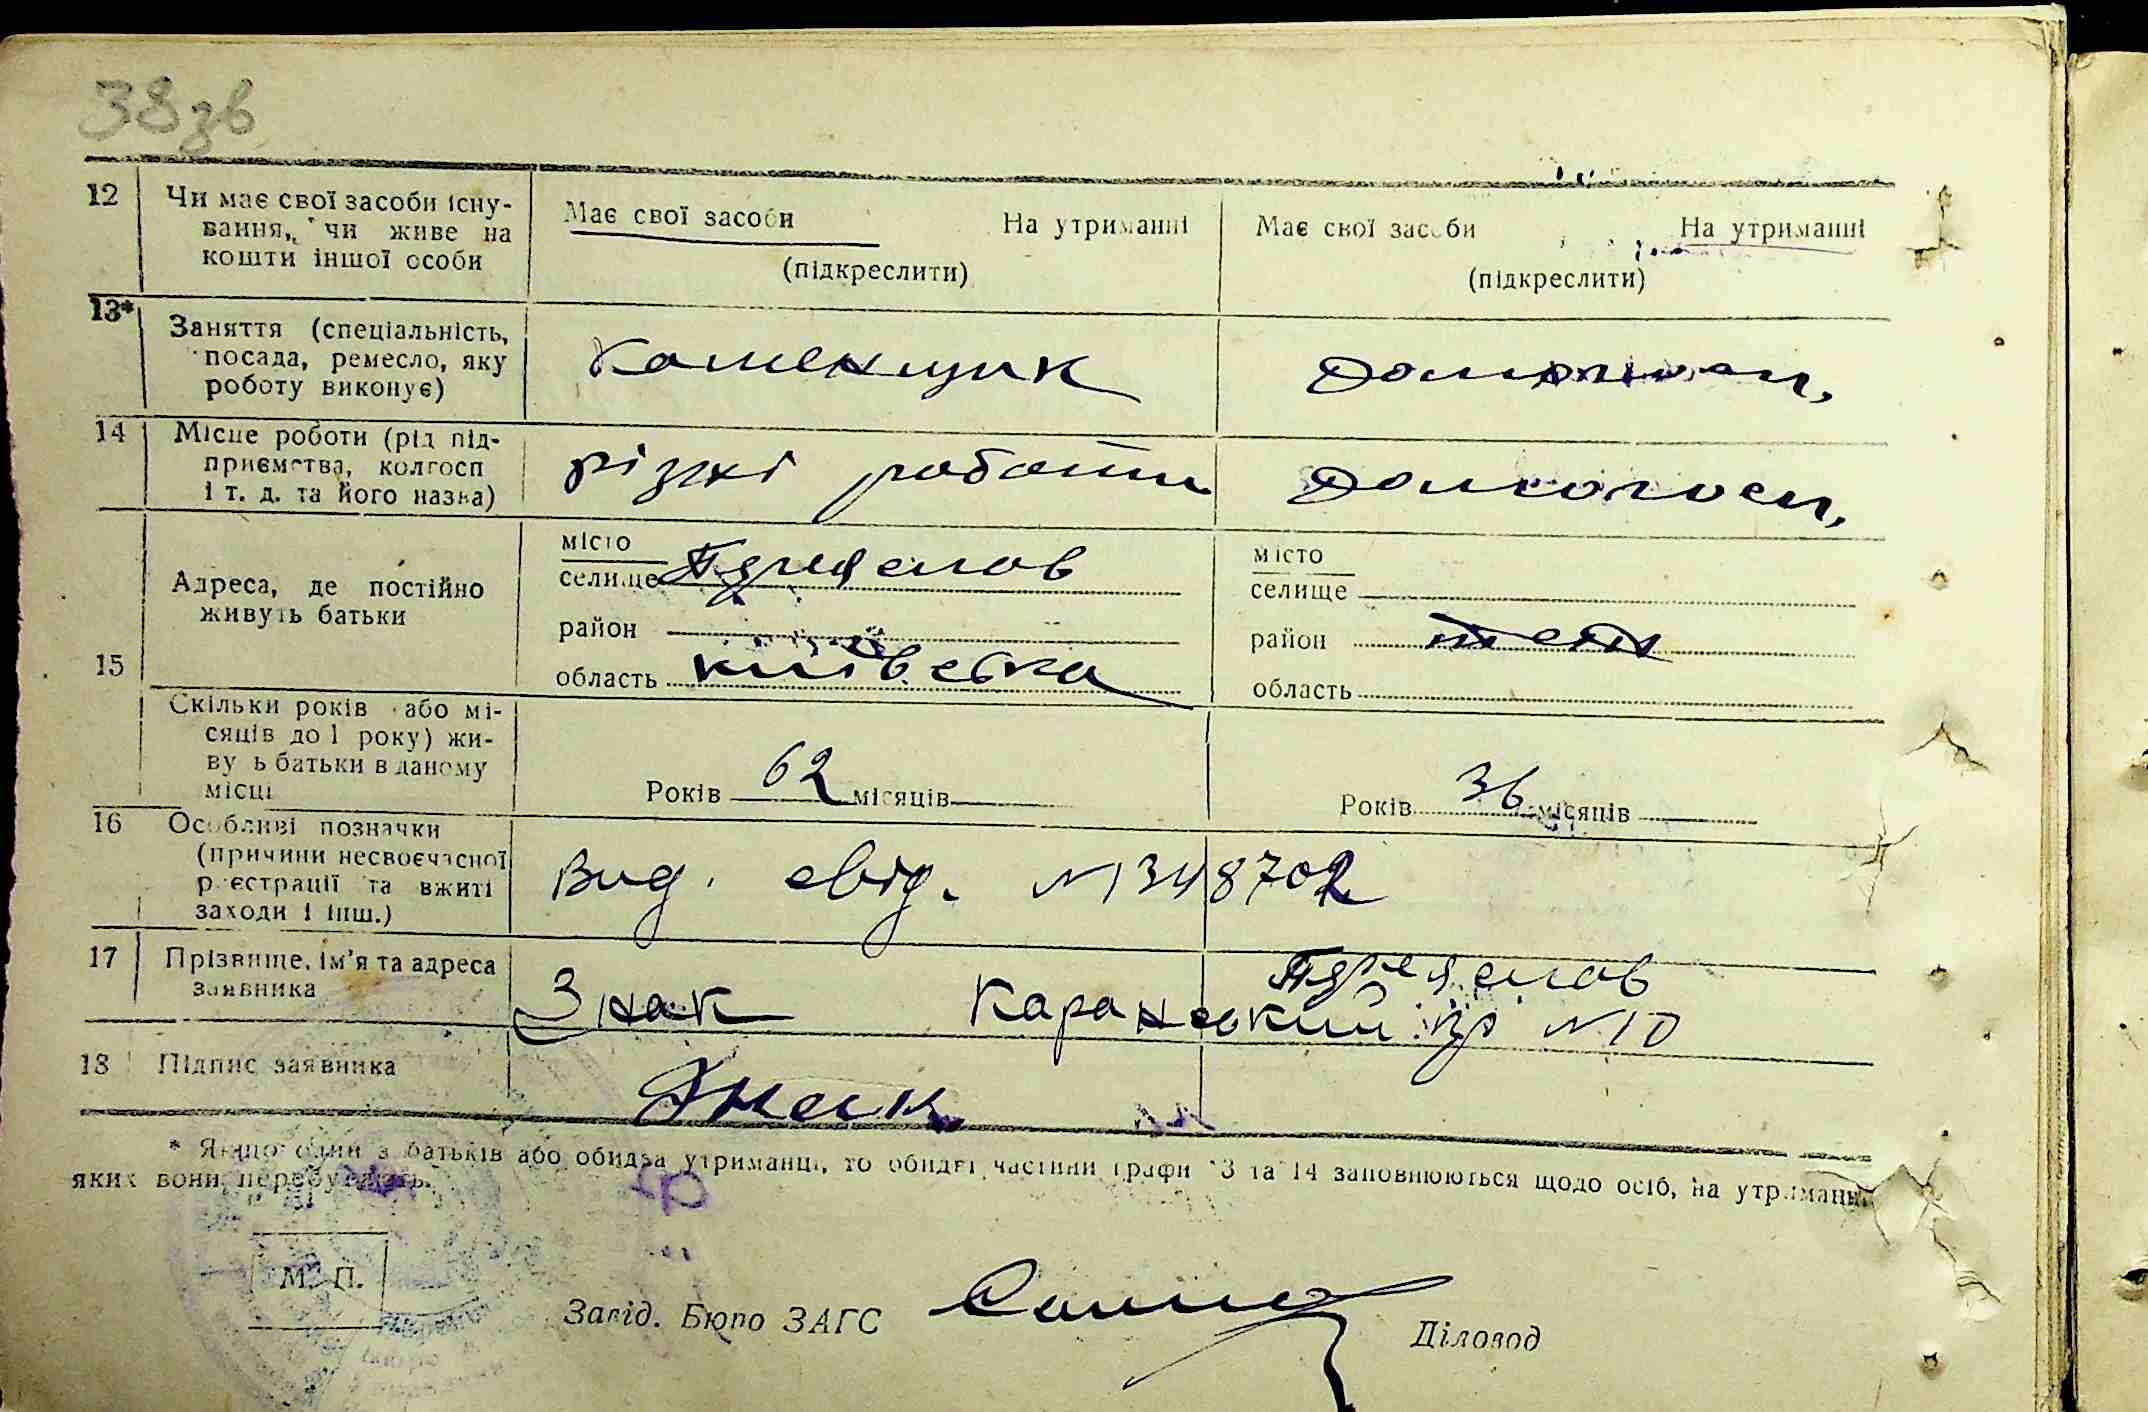 38зв
12 Чи має свої засоби існу-
вання, чи живе на
кошти іншої особи
Має свої засоби На утриманні
(підкреслити)
Має свої засоби На утриманні
(підкреслити)
13* Заняття (спеціальність,
посада, ремесло, яку
роботу виконує)
Каменщик
Домогосп,
14 Місце роботи (рід під-
приємства, колгосп
і т. д. та його назва)
різні роботи
Домогосп,
15 Адреса, де постійно
живуть батьки
місто
селище
район
область київська
місто
селище
район теж
область
Скільки років або мі-
сяців до 1 року) жи-
вуть батьки в даному
місці
Років 62 місяців
Років 36 місяців
16 Особливі позначки
(причини несвоєчасної
реєстрації та вжиті
заходи і інш.)
Вид. свід. N 348702
17 Прізвище, ім'я та адреса
заявника
Знак Каранський N 10
18 Підпис заявника
Знак
* Якщо один з батьків або обидва утриманці, то обидві частини графи 13 та 14 заповнюються щодо осіб, на утриманні
яких вони перебувають.
М. П.
Завід. Бюро ЗАГС
Діловод